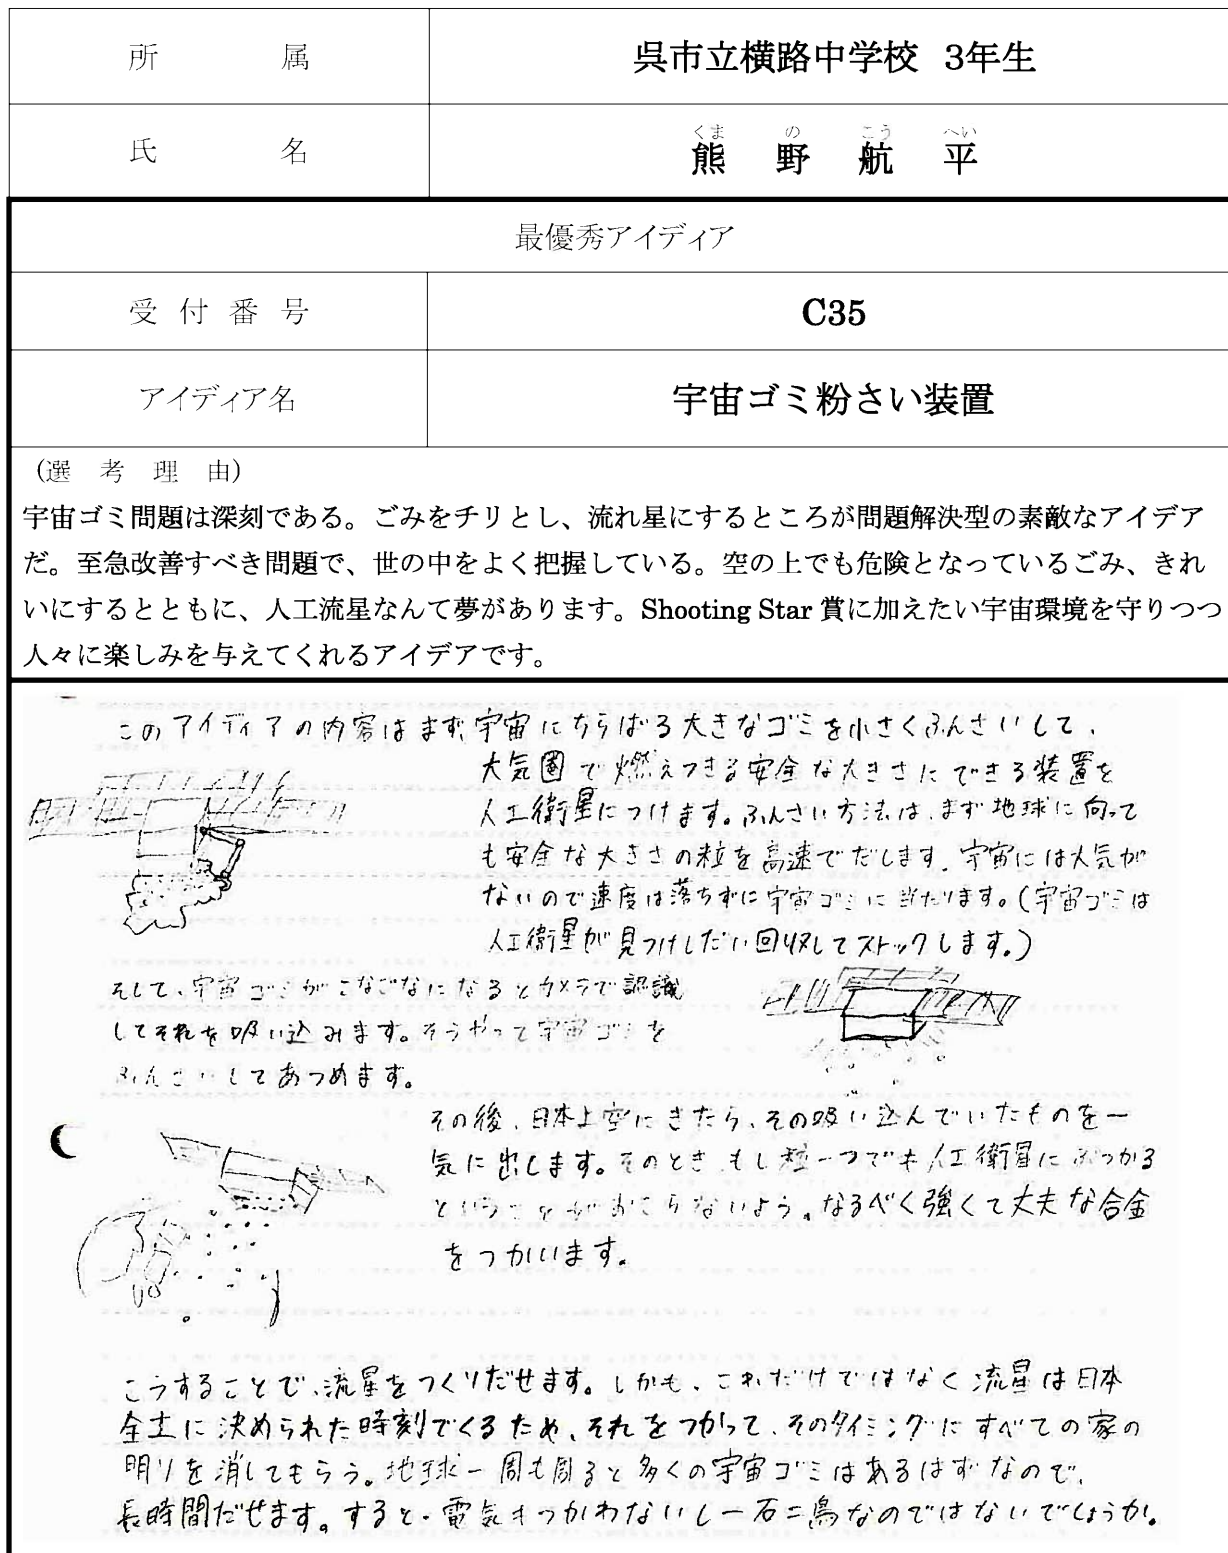 所属 呉市立横路中学校 3年生
くま の こう へい
氏名 熊野航平
最優秀アイディア
受付番号 C35
アイディア名 宇宙ゴミ粉さい装置
(選考理由)
宇宙ゴミ問題は深刻である。ごみをチリとし、流れ星にするところが問題解決型の素敵なアイデア
だ。至急改善すべき問題で、世の中をよく把握している。空の上でも危険となっているごみ、きれ
いにするとともに、人工流星なんて夢があります。Shooting Star 賞に加えたい宇宙環境を守りつつ
人々に楽しみを与えてくれるアイデアです。
このアイディアの内容はまず、宇宙にちらばる大きなゴミを小さくふんさいして、
大気圏で燃えつきる安全な大きさにできる装置を
人工衛星につけます。ふんさい方法は、まず地球に向って
も安全な大きさの粒を高速でだします。宇宙には大気が
ないので速度は落ちずに宇宙ゴミに当たります。(宇宙ゴミは
人工衛星が見つけしだい回収してストックします。)
そして、宇宙ゴミがこなごなになるとカメラで認識
してそれを吸い込みます。そうやって宇宙ゴミを
ふんさいしてあつめます。
その後、日本上空にきたら、その吸い込んでいたものを一
気に出します。そのとき、もし粒一つでも人工衛星にぶつかる
ということがおこらないよう。なるべく強くて丈夫な合金
をつかいます。
こうすることで、流星をつくりだせます。しかも、これだけではなく流星は日本
全土に決められた時刻でくるため、それをつかって、そのタイミングにすべての家の
明りを消してもらう。地球一周も周ると多くの宇宙ゴミはあるはずなので、
長時間だせます。すると、電気もつかわないし一石二鳥なのではないでしょうか。